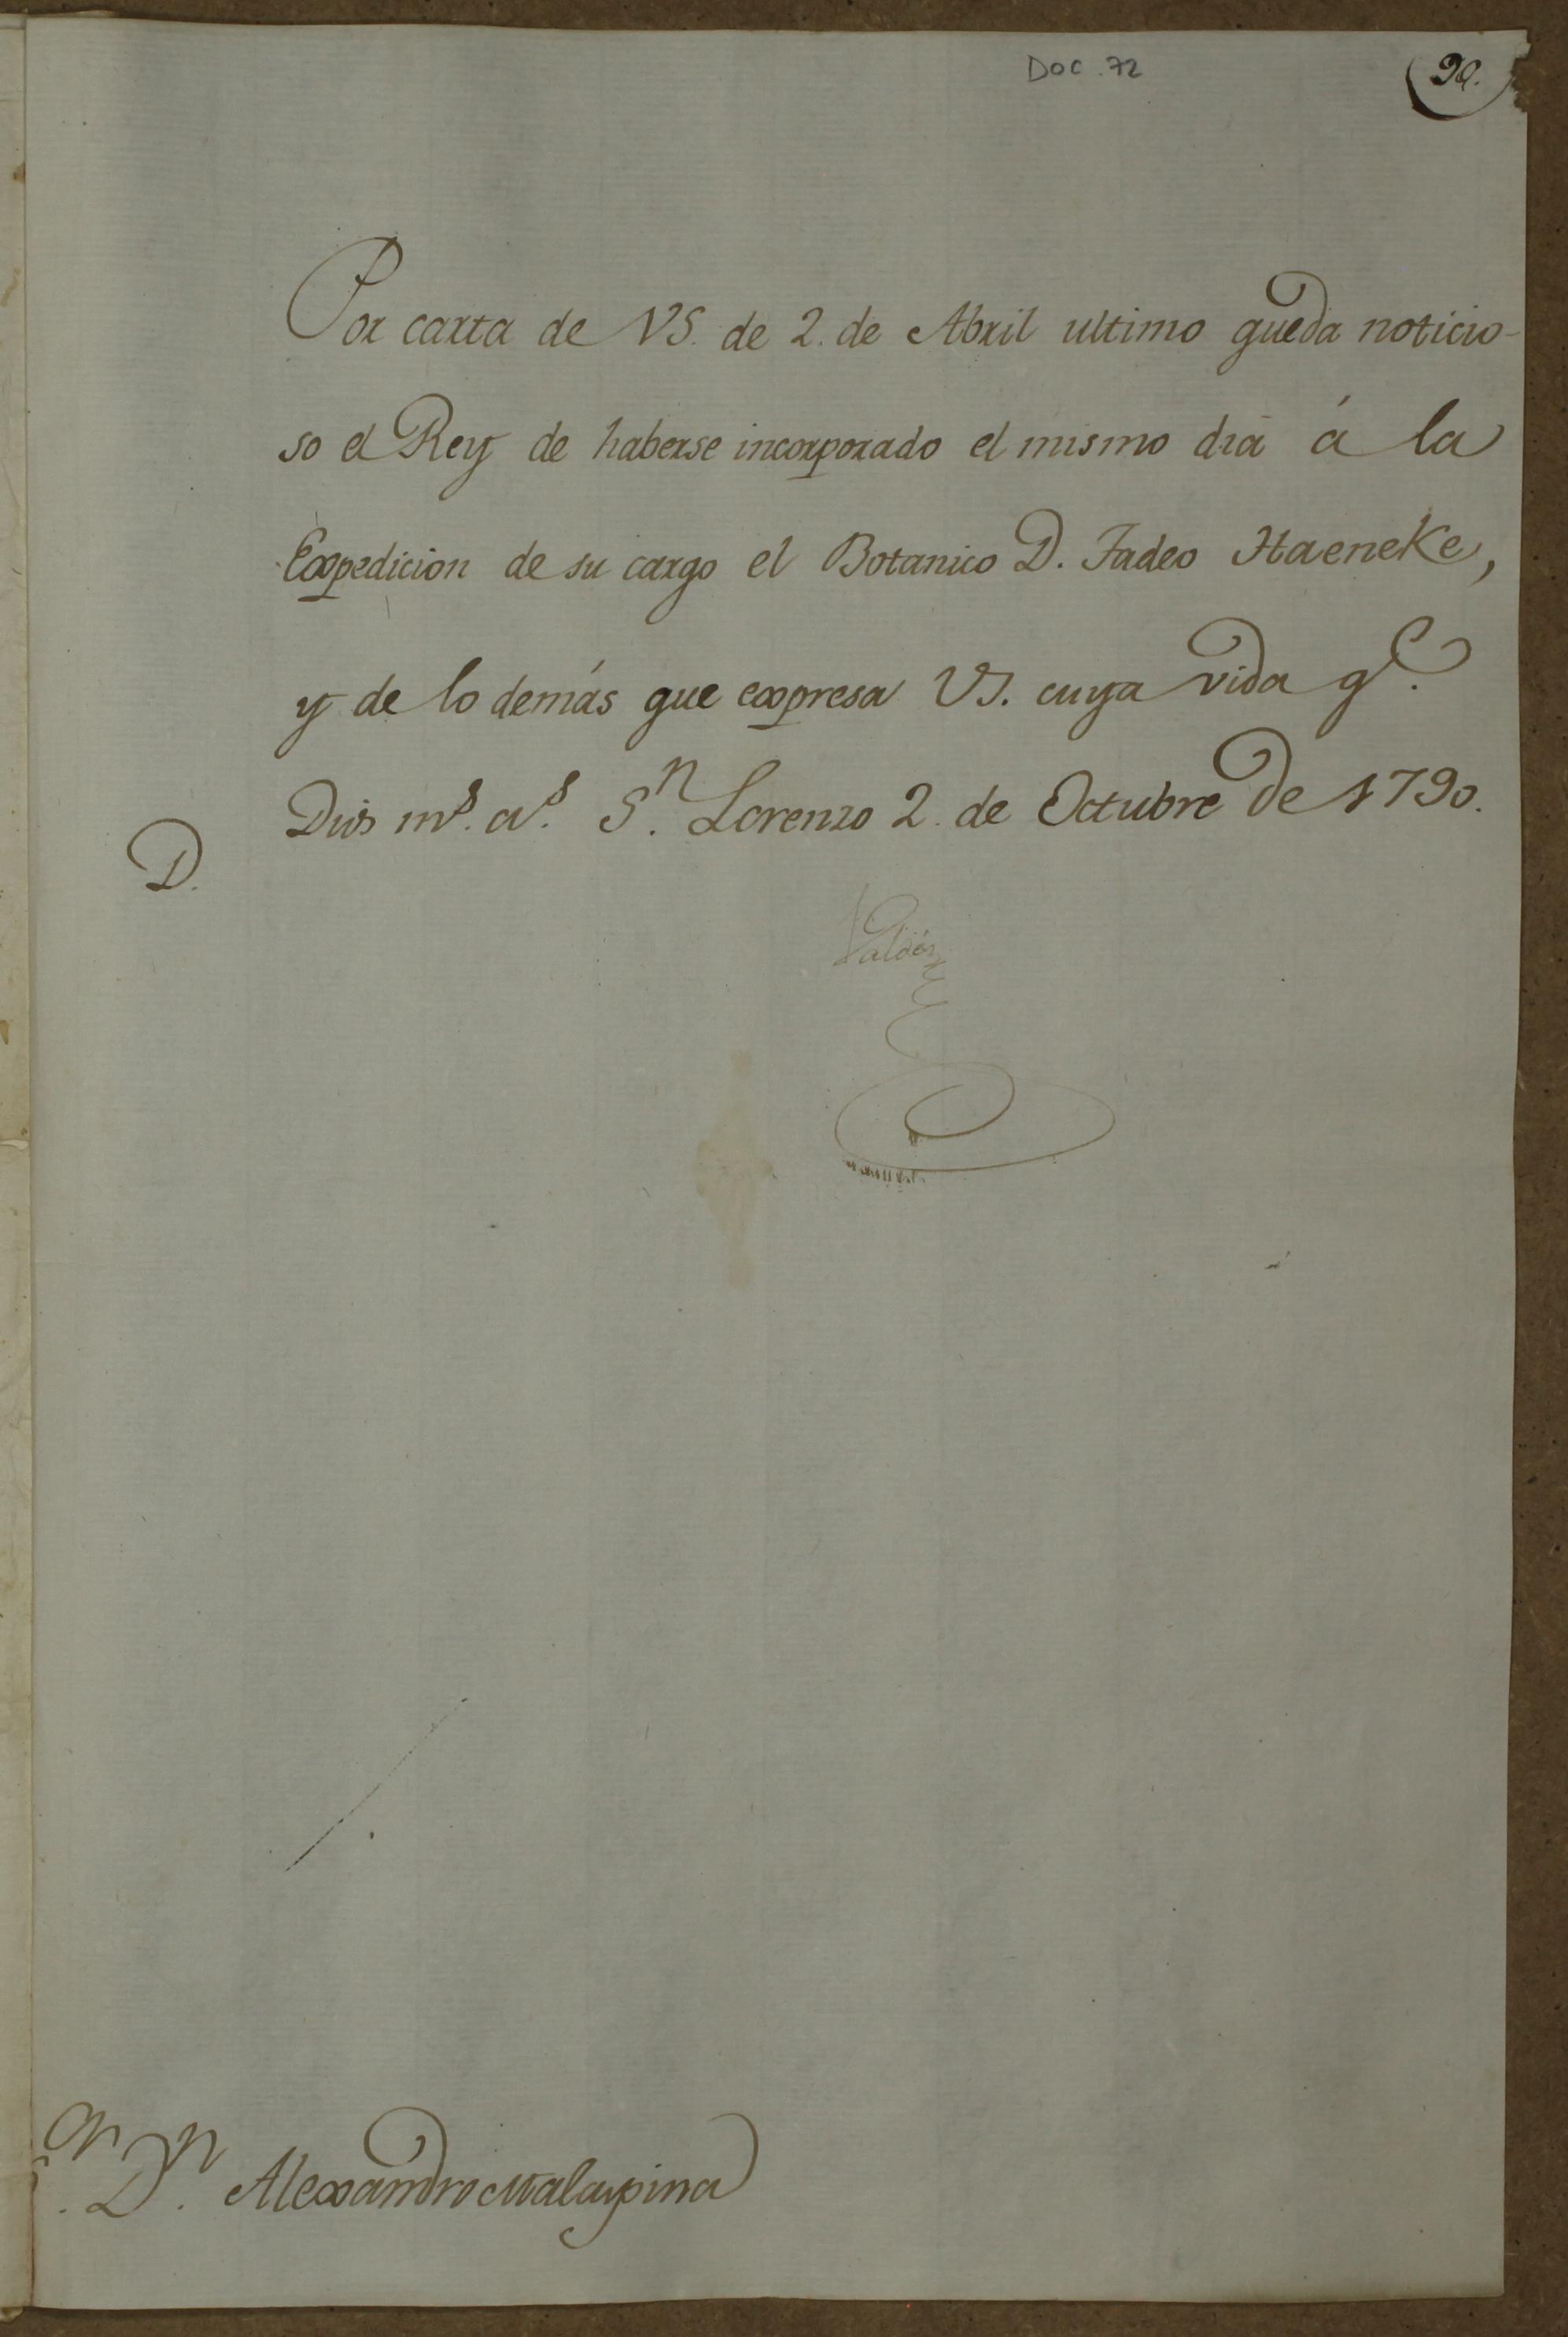 DOC. 72
90.
Por carta de VS. de 2. de Abril ultimo queda noticio-
so el Rey de haberse incorporado el mismo dia á la
Expedicion de su cargo el Botanico D. Tadeo Haeneke,
y de lo demás que expresa VS. cuya vida gᵉ.
Dios mˢ. aˢ. Sⁿ. Lorenzo 2. de Octubre de 1790.
D.
Valdés
Sᵒʳ. Dⁿ. Alexandro Malaspina